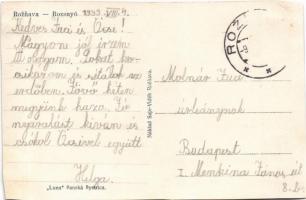 Rožňava — Rozsnyó 1939. VIII. 4.
Kedves Juci és Öcsi!
Nagyon jól érzem
magam. Sokat ko-
csikázom és sétálok az
erdőben. Jövő héten
megyünk haza. Jó
nyaralást kíván és
csókol Öcsivel együtt
Helga.
"Luna" Banská Bystrica.
Náklad Sajo-Vidék Rožňava.
ROŽ
Molnár Juci
úrleánynak
Budapest
I. Menkina János út
8.